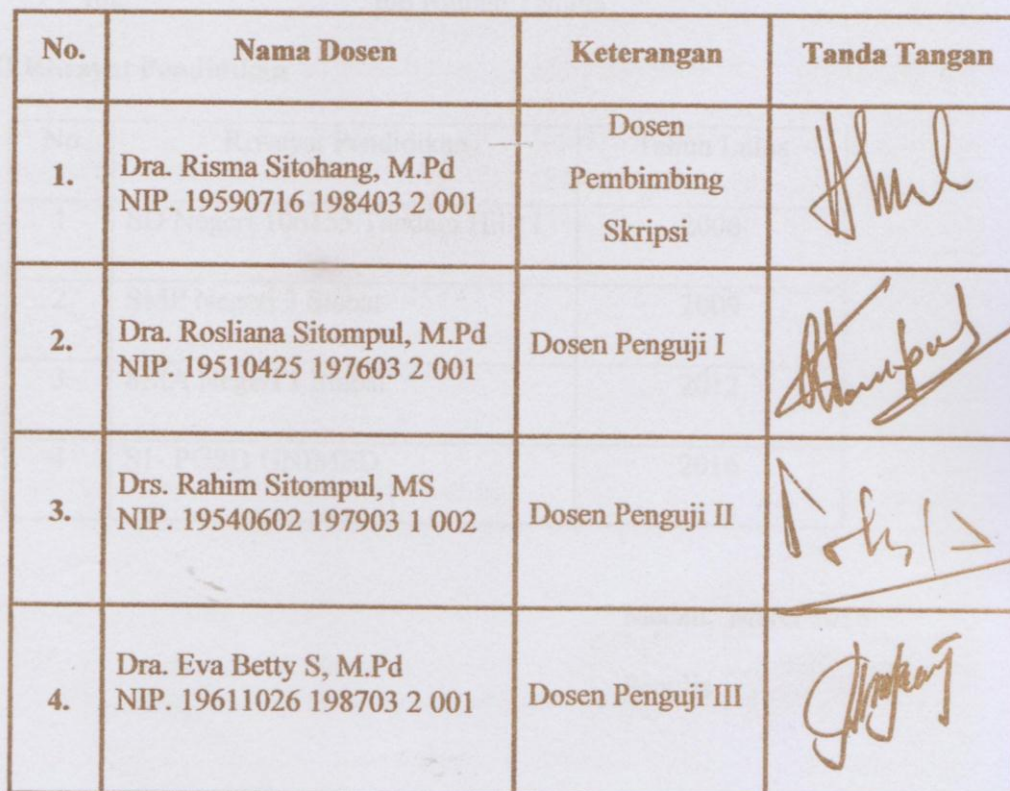 No. Nama Dosen Keterangan Tanda Tangan
1. Dra. Risma Sitohang, M.Pd
NIP. 19590716 198403 2 001
Dosen
Pembimbing
Skripsi
2. Dra. Rosliana Sitompul, M.Pd
NIP. 19510425 197603 2 001
Dosen Penguji I
3. Drs. Rahim Sitompul, MS
NIP. 19540602 197903 1 002
Dosen Penguji II
4. Dra. Eva Betty S, M.Pd
NIP. 19611026 198703 2 001
Dosen Penguji III